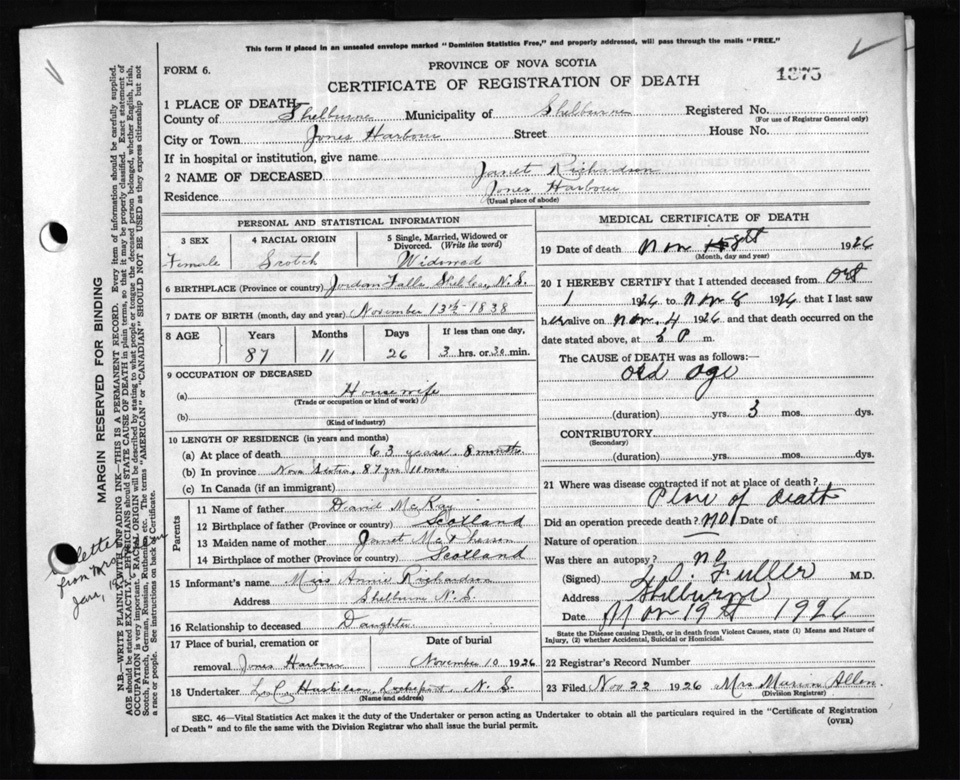 This form if placed in an unsealed envelope marked "Dominion Statistics Free," and properly addressed, will pass through the mails "FREE."
FORM 6.
PROVINCE OF NOVA SCOTIA
1375
CERTIFICATE OF REGISTRATION OF DEATH
1 PLACE OF DEATH
County of Shelburne Municipality of Shelburne Registered No.
(For use of Registrar General only)
City or Town Jones Harbour Street House No.
If in hospital or institution, give name
2 NAME OF DECEASED Janet Richardson
Residence Jones Harbour
(Usual place of abode)
PERSONAL AND STATISTICAL INFORMATION
3 SEX 4 RACIAL ORIGIN 5 Single, Married, Widowed or Divorced. (Write the word)
Female Scotch Widowed
6 BIRTHPLACE (Province or country) Jordan Falls N.S.
7 DATE OF BIRTH (month, day and year) November 13th 1838
8 AGE Years Months Days If less than one day,
87 11 26 3 hrs. or 30 min.
9 OCCUPATION OF DECEASED
(a) House wife
(Trade or occupation or kind of work)
(b)
(Kind of industry)
10 LENGTH OF RESIDENCE (in years and months)
(a) At place of death 63 years 8 months
(b) In province Nova Scotia, 87 yrs 11 mos
(c) In Canada (if an immigrant)
Parents
11 Name of father David McKay
12 Birthplace of father (Province or country) Scotland
13 Maiden name of mother Janet McPherson
14 Birthplace of mother (Province or country) Scotland
15 Informant's name Miss Annie Richardson
Address Shelburne N.S.
16 Relationship to deceased Daughter
17 Place of burial, cremation or Date of burial
removal Jones Harbour November 10 1926
18 Undertaker Huskilson, Lockeport, N. S.
(Name and address)
MEDICAL CERTIFICATE OF DEATH
19 Date of death Nov 8th 1926
(Month, day and year)
20 I HEREBY CERTIFY that I attended deceased from Oct
1 1926 to Nov 8 1926 that I last saw
her alive on Nov. 4 1926 and that death occurred on the
date stated above, at 8 P m.
The CAUSE OF DEATH was as follows:—
Old age
(duration) yrs. 3 mos. dys.
CONTRIBUTORY
(Secondary)
(duration) yrs. mos. dys.
21 Where was disease contracted if not at place of death?
Place of death
Did an operation precede death? NO. Date of
Nature of operation
Was there an autopsy? no
(Signed) Fuller M.D.
Address Shelburne
Date Nov 19th 1926
State the Disease causing Death, or in death from Violent Causes, state (1) Means and Nature of Injury, (2) whether Accidental, Suicidal or Homicidal.
22 Registrar's Record Number
23 Filed Nov 22 1926 Mrs Marion Allen
(Division Registrar)
SEC. 46—Vital Statistics Act makes it the duty of the Undertaker or person acting as Undertaker to obtain all the particulars required in the "Certificate of Registration
of Death" and to file the same with the Division Registrar who shall issue the burial permit.
(OVER)
MARGIN RESERVED FOR BINDING
N.B.—WRITE PLAINLY, WITH UNFADING INK—THIS IS A PERMANENT RECORD. Every item of information should be carefully supplied.
AGE should be stated EXACTLY. PHYSICIANS should STATE CAUSE OF DEATH in plain terms, so that it may be properly classified. Exact statement of
OCCUPATION is very important. RACIAL ORIGIN will be described by stating to what people or tongue the deceased person belonged, whether English, Irish,
Scotch, French, German, Russian, Ruthenian, etc. The terms "AMERICAN" or "CANADIAN" SHOULD NOT BE USED as they express citizenship but not
a race or people. See instructions on back of Certificate.
letter
from Mrs